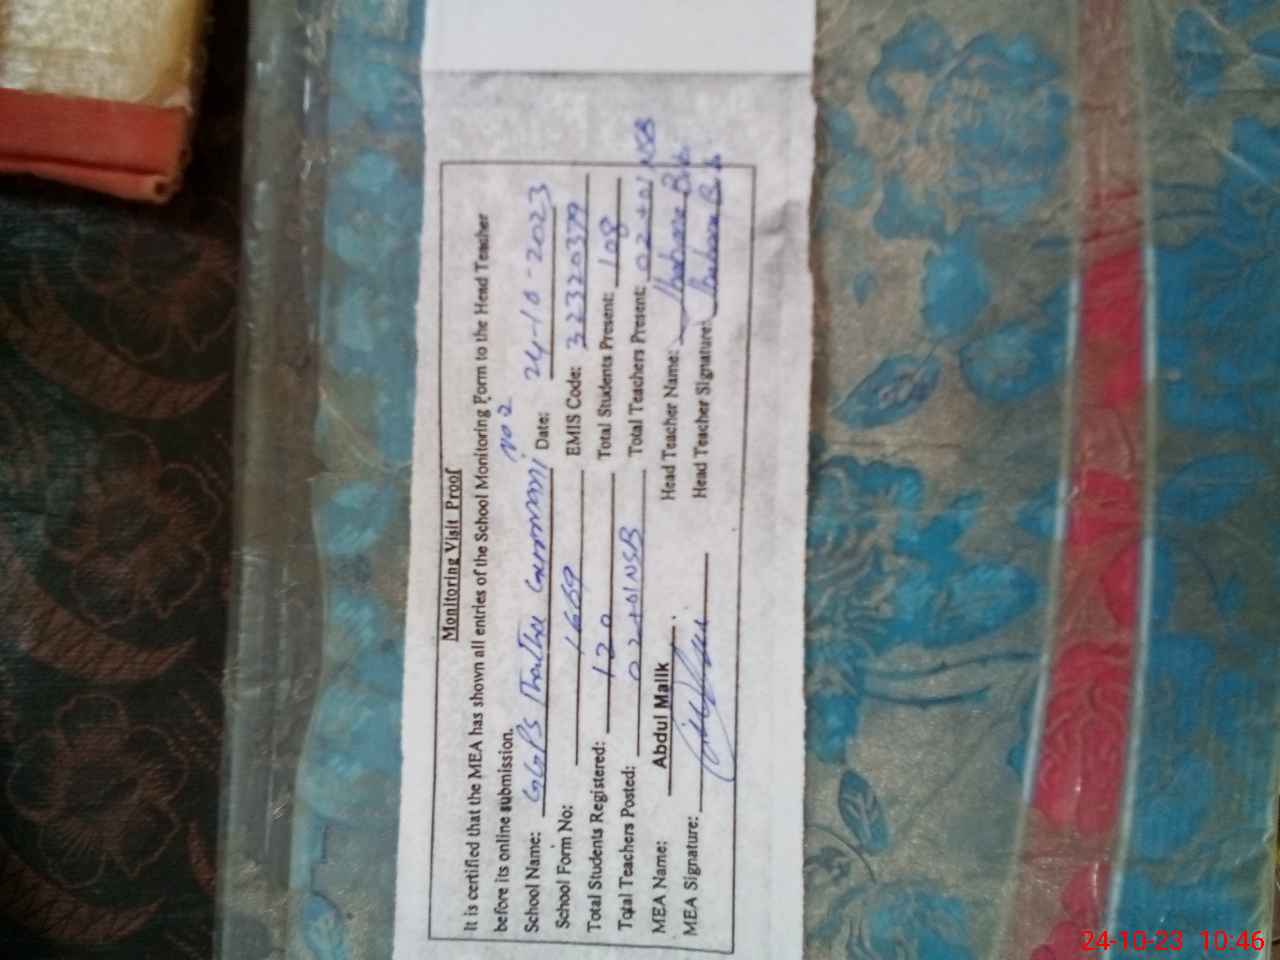 Monitoring Visit Proof
It is certified that the MEA has shown all entries of the School Monitoring Form to the Head Teacher
before its online submission.
School Name: GGPS No 2 Date: 24-10-2023
School Form No: 1669 EMIS Code: 32320379
Total Students Registered: 120 Total Students Present: 108
Total Teachers Posted: 02+01NSB Total Teachers Present: 02+01 NSB
MEA Name: Abdul Malik Head Teacher Name:
MEA Signature: Head Teacher Signature:
24-10-23 10:46